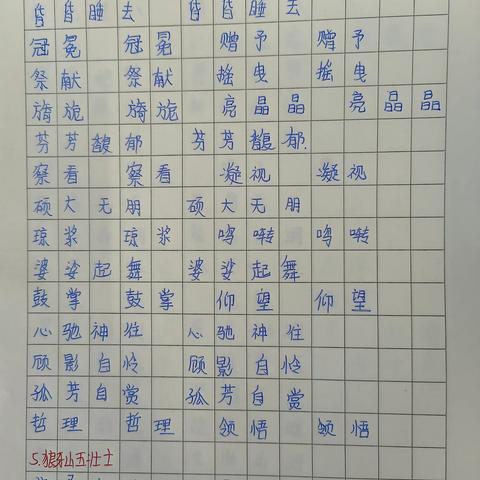 昏昏睡去 昏昏睡去
冠冕 冠冕 赠予 赠予
祭献 祭献 摇曳 摇曳
旖旎 旖旎 亮晶晶 亮晶晶
芬芳馥郁 芬芳馥郁.
察看 察看 凝视 凝视
硕大无朋 硕大无朋
琼浆 琼浆 鸣啭 鸣啭
婆娑起舞 婆娑起舞
鼓掌 鼓掌 仰望 仰望
心驰神往 心驰神往
顾影自怜 顾影自怜
孤芳自赏 孤芳自赏
哲理 哲理 领悟 领悟
5.狼牙山五壮士